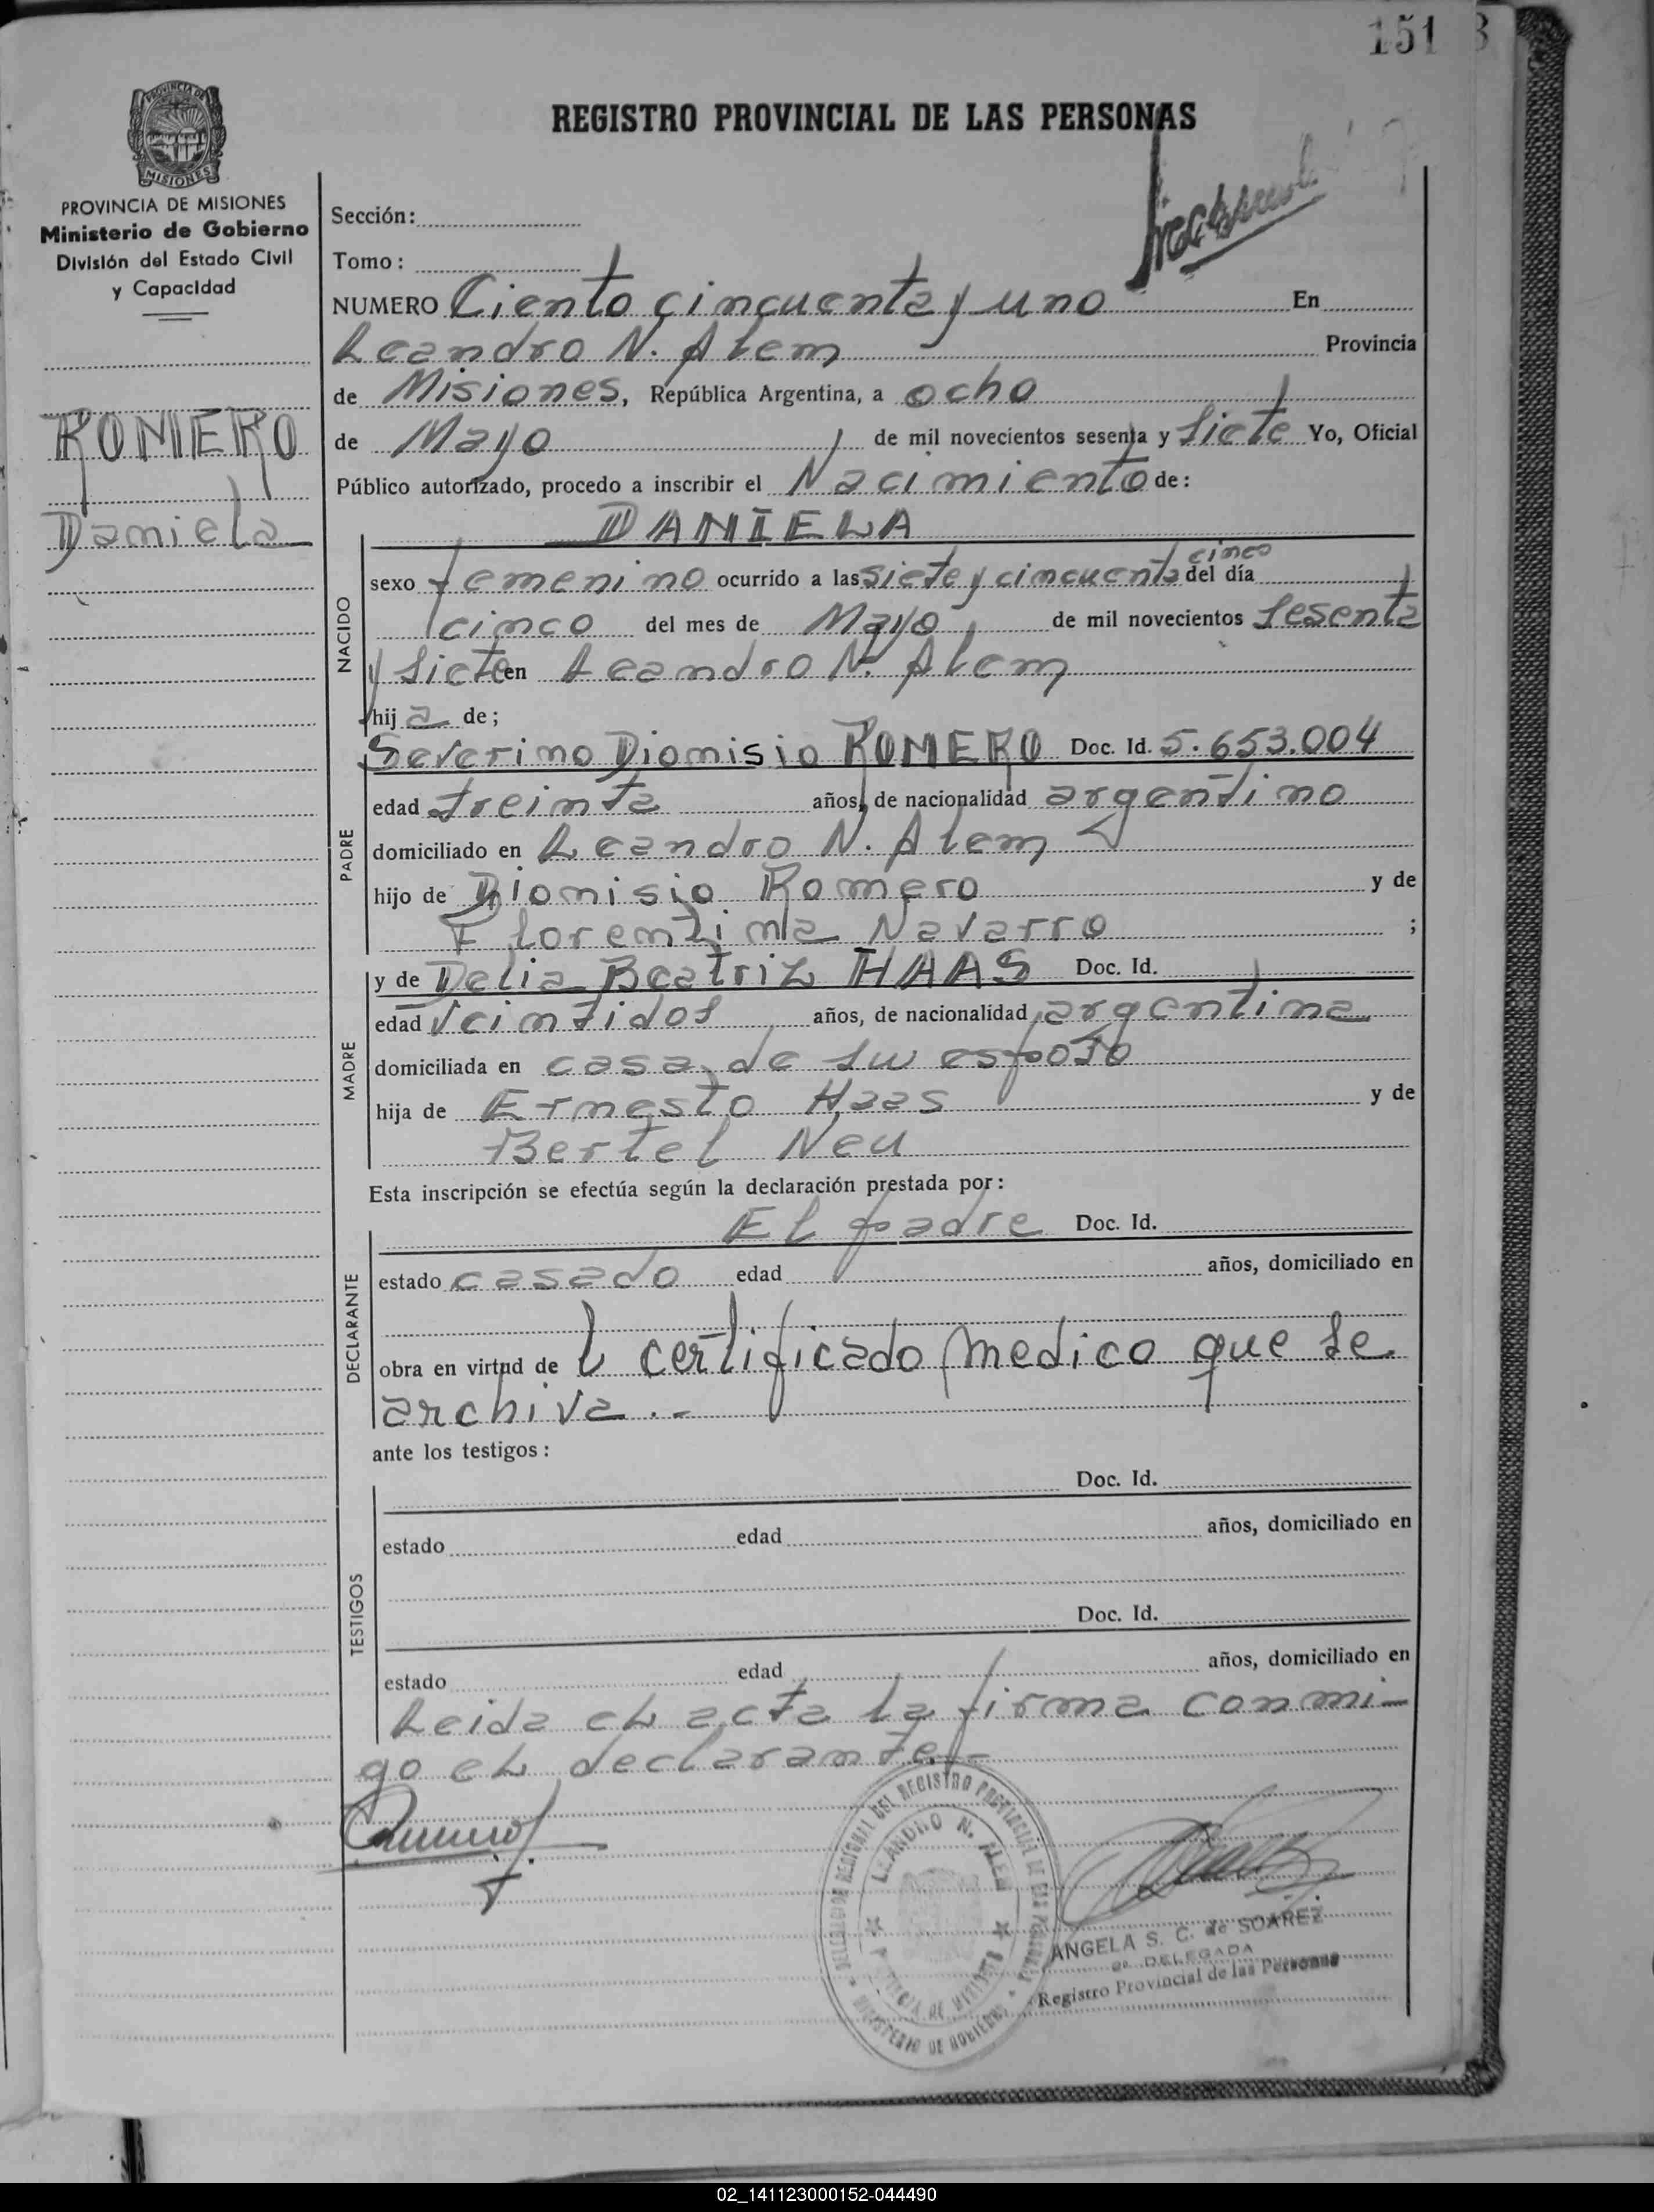 151
REGISTRO PROVINCIAL DE LAS PERSONAS
PROVINCIA DE MISIONES
PROVINCIA DE MISIONES
Ministerio de Gobierno
División del Estado Civil
y Capacidad
ROMERO
Daniela
Sección:
Tomo:
NUMERO Ciento cincuenta y uno En
Leandro N. Alem Provincia
de Misiones, República Argentina, a ocho
de Mayo de mil novecientos sesenta y siete Yo, Oficial
Público autorizado, procedo a inscribir el Nacimiento de:
DANIELA
NACIDO
cinco
sexo femenino ocurrido a las siete y cincuenta del día
cinco del mes de Mayo de mil novecientos sesenta
y siete en Leandro N. Alem
hij a de;
Severino Dionisio ROMERO Doc. Id. 5.653.004
PADRE
edad treinta años, de nacionalidad argentino
domiciliado en Leandro N. Alem
hijo de Dionisio Romero y de
Florentina Navarro ;
y de Delia Beatriz HAAS Doc. Id.
MADRE
edad veintidos años, de nacionalidad argentina
domiciliada en casa de su esposo
hija de Ernesto Haas y de
Bertel Neu
Esta inscripción se efectúa según la declaración prestada por:
El padre Doc. Id.
DECLARANTE
estado casado edad años, domiciliado en
obra en virtud de l certificado medico que se
archiva.-
ante los testigos:
Doc. Id.
TESTIGOS
estado edad años, domiciliado en
Doc. Id.
estado edad años, domiciliado en
Leida el acta la firma conmi-
go el declarante.-
DELEGACION REGIONAL DEL REGISTRO PROVINCIAL DE LAS PERSONAS
LEANDRO N. ALEM
PROVINCIA DE MISIONES
MINISTERIO DE GOBIERNO
ANGELA S. C. de SOAREZ
DELEGADA
Registro Provincial de las Personas
02_141123000152-044490